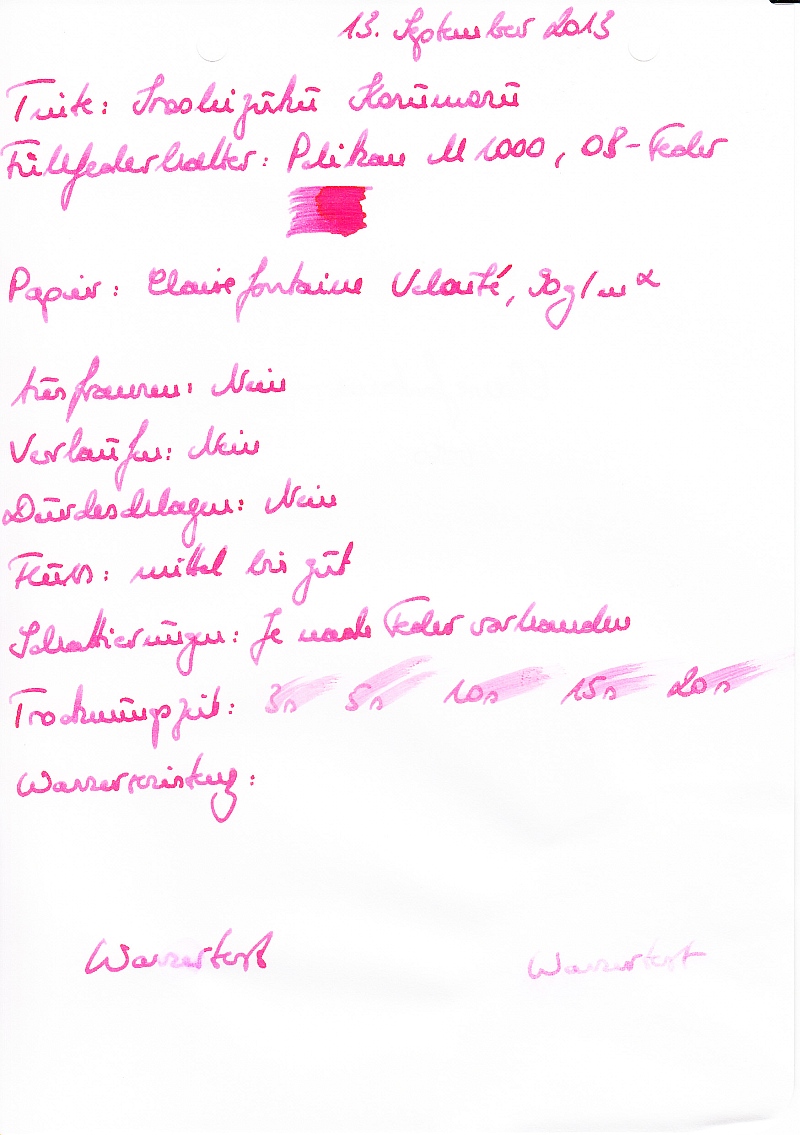 13. September 2013
Tinte: Iroshizuku Kosumosu
Füllfederhalter: Pelikan M 1000, OB-Feder
Papier: Clairefontaine Velouté, 90g/m²
Ausfransen: Nein
Verlaufen: Nein
Durchschlagen: Nein
Fluss: mittel bis gut
Schattierungen: Je nach Feder vorhanden
Trocknungszeit: 3s 5s 10s 15s 20s
Wasserresistenz:
Wassertest Wassertest